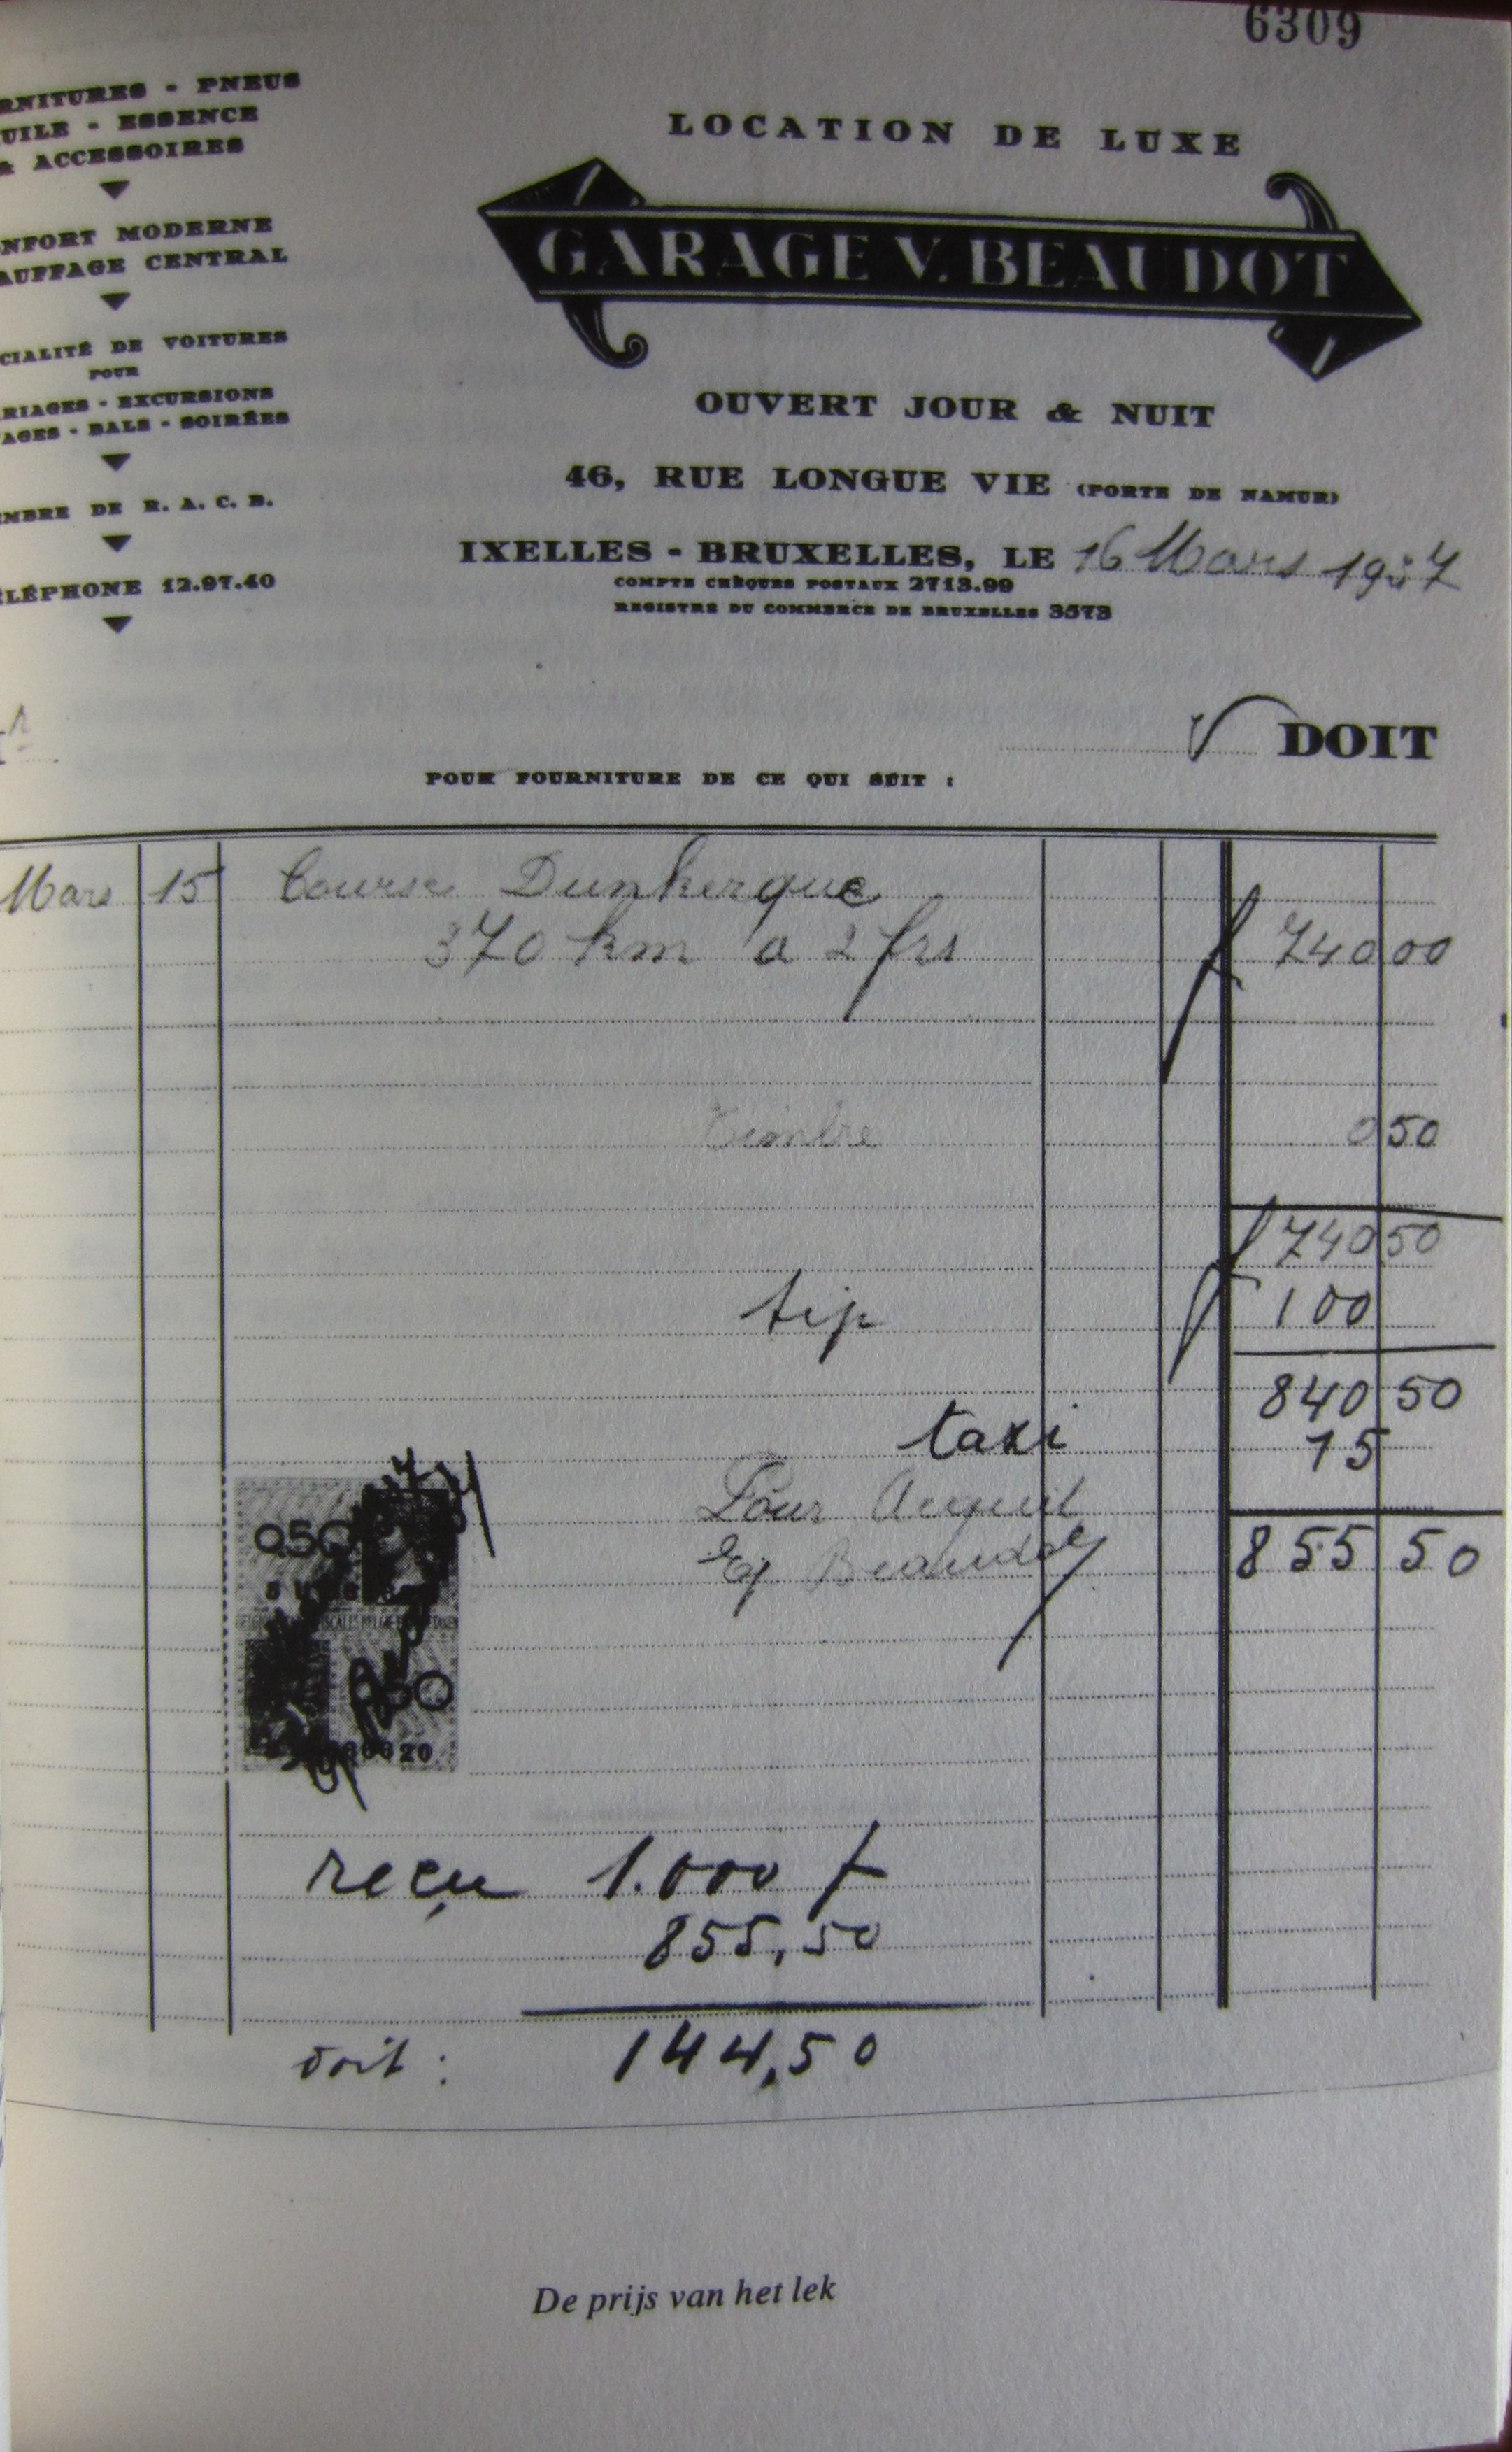 6309
RNITURES - PNEUS
UILE - ESSENCE
& ACCESSOIRES
NFORT MODERNE
AUFFAGE CENTRAL
CIALITÉ DE VOITURES
POUR
RIAGES - EXCURSIONS
AGES - BALS - SOIRÉES
MBRE DE R. A. C. B.
ÉLÉPHONE 12.97.40
LOCATION DE LUXE
GARAGE V. BEAUDOT
OUVERT JOUR & NUIT
46, RUE LONGUE VIE (PORTE DE NAMUR)
IXELLES - BRUXELLES, LE 16 Mars 1937
COMPTE CHÈQUES POSTAUX 2713.99
REGISTRE DU COMMERCE DE BRUXELLES 3573
DOIT
POUR FOURNITURE DE CE QUI SUIT :
Mars 15 Course Dunkerque
370 km a 2 frs 740 00
timbre 0 50
740 50
tip 100
840 50
taxi 15
Pour Acquit
Beaudot 855 50
050
050
reçu 1.000 f
855,50
doit : 144,50
De prijs van het lek